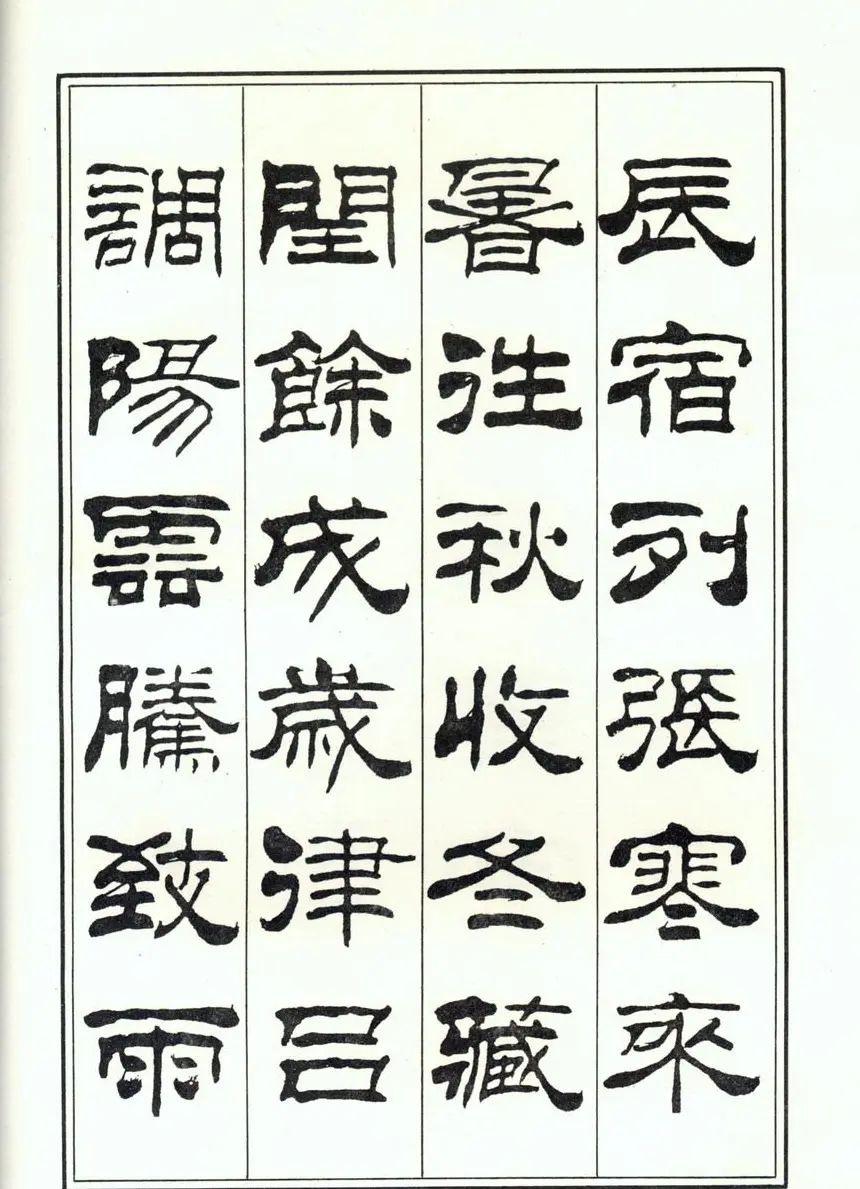 辰宿列張寒來
暑往秋收冬藏
閏餘成歲律呂
調陽雲騰致雨